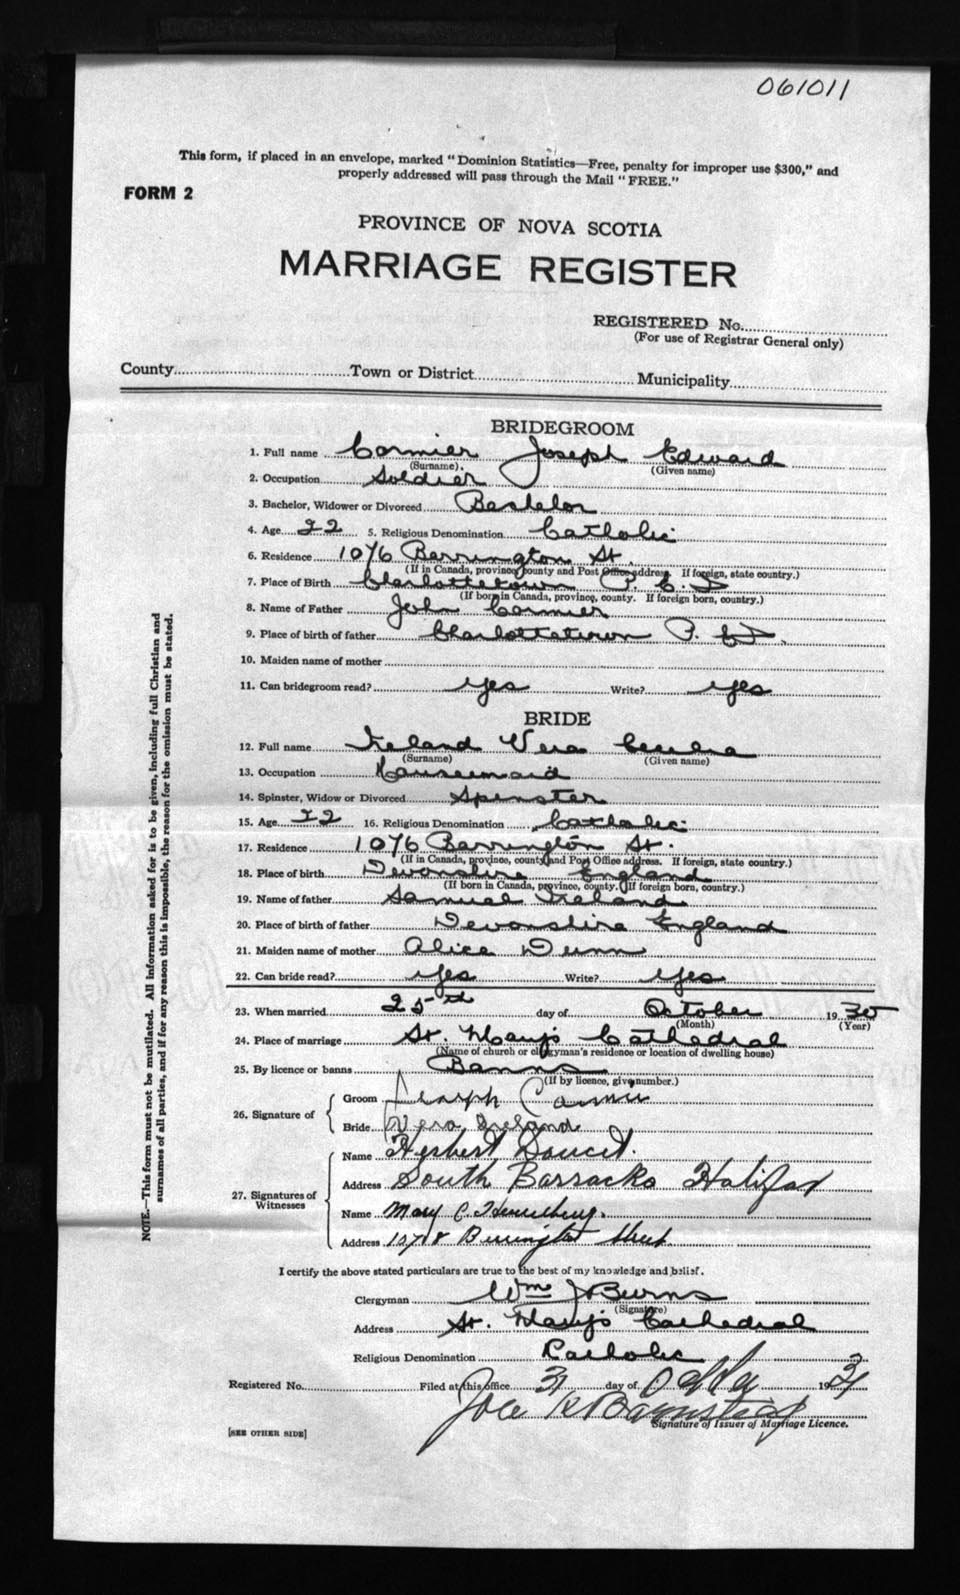 061011
This form, if placed in an envelope, marked "Dominion Statistics—Free, penalty for improper use $300," and
properly addressed will pass through the Mail "FREE."
FORM 2
PROVINCE OF NOVA SCOTIA
MARRIAGE REGISTER
REGISTERED No.
(For use of Registrar General only)
County Town or District Municipality
BRIDEGROOM
1. Full name Cormier Joseph Edward
(Surname). (Given name)
2. Occupation Soldier
3. Bachelor, Widower or Divorced Bachelor
4. Age 22 5. Religious Denomination Catholic
6. Residence 1076 Barrington St.
(If in Canada, province, county and Post Office address. If foreign, state country.)
7. Place of Birth Charlottetown P. E. I
(If born in Canada, province, county. If foreign born, country.)
8. Name of Father John Cormier
9. Place of birth of father Charlottetown P. E I.
10. Maiden name of mother
11. Can bridegroom read? yes Write? yes
BRIDE
12. Full name Ireland Vera
(Surname) (Given name)
13. Occupation Housemaid
14. Spinster, Widow or Divorced Spinster
15. Age 22 16. Religious Denomination Catholic
17. Residence 1076 Barrington St.
(If in Canada, province, county and Post Office address. If foreign, state country.)
18. Place of birth Devonshire England
(If born in Canada, province, county. If foreign born, country.)
19. Name of father Samuel Ireland
20. Place of birth of father Devonshire England
21. Maiden name of mother Alice Dunn
22. Can bride read? yes Write? yes
23. When married 25th day of October 1930
(Month) (Year)
24. Place of marriage St. Mary's Cathedral
(Name of church or clergyman's residence or location of dwelling house)
25. By licence or banns Banns
(If by licence, give number.)
26. Signature of
Groom Joseph Cormier
Bride Vera Ireland
27. Signatures of Witnesses
Name Herbert Doucet.
Address South Barracks Halifax
Name Mary C.
Address Barrington Street
I certify the above stated particulars are true to the best of my knowledge and belief.
Clergyman Wm J Burns
(Signature)
Address St. Mary's Cathedral
Religious Denomination Catholic
Registered No. Filed at this office 31 day of 193
Signature of Issuer of Marriage Licence.
[SEE OTHER SIDE]
NOTE.—This form must not be mutilated. All information asked for is to be given, including full Christian and
surnames of all parties, and if for any reason this is impossible, the reason for the omission must be stated.